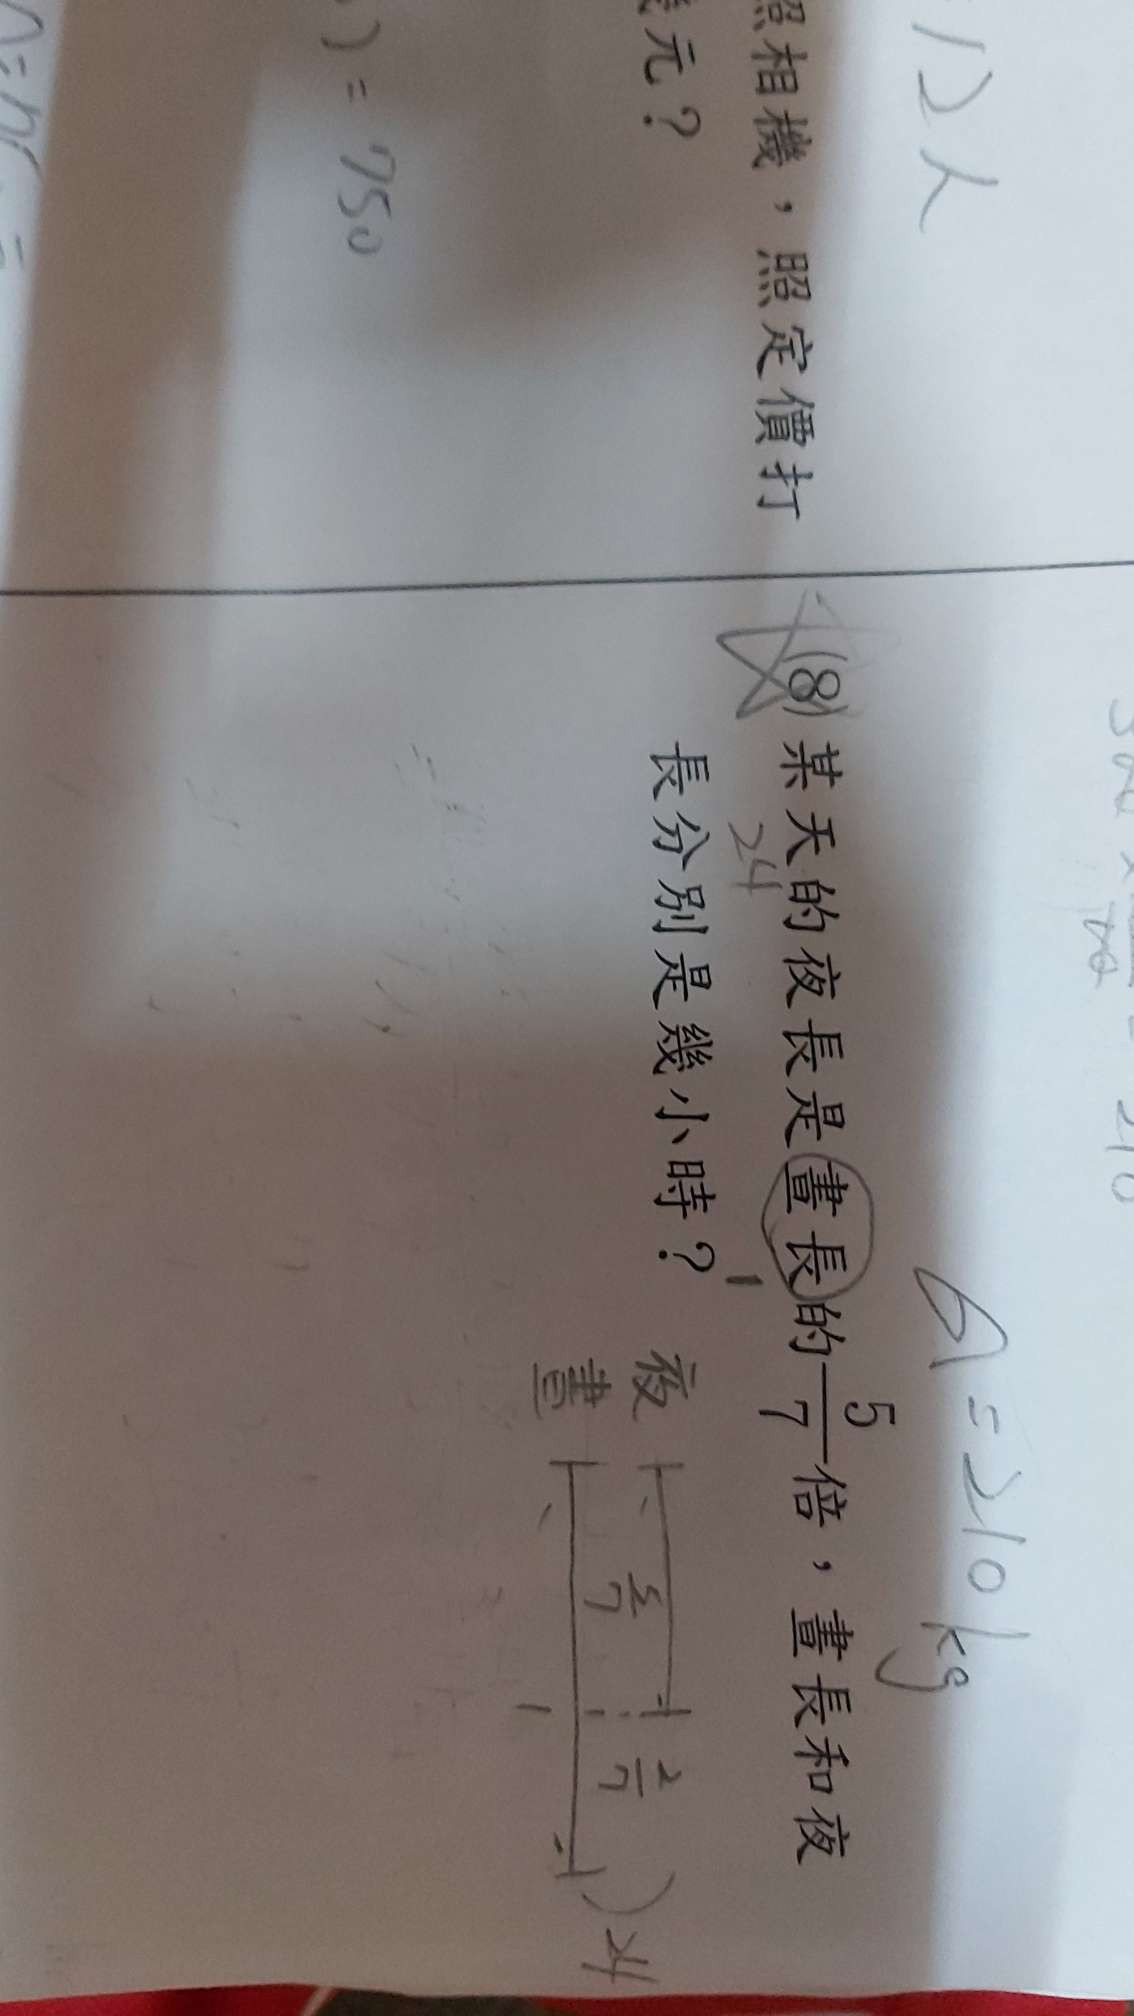 12人
照相機，照定價打
元？
) = 750
210
A = 210 kg
(8) 某天的夜長是晝長的 5/7 倍，晝長和夜
24
1
長分別是幾小時？
夜
晝
5/7
2/7
1
24